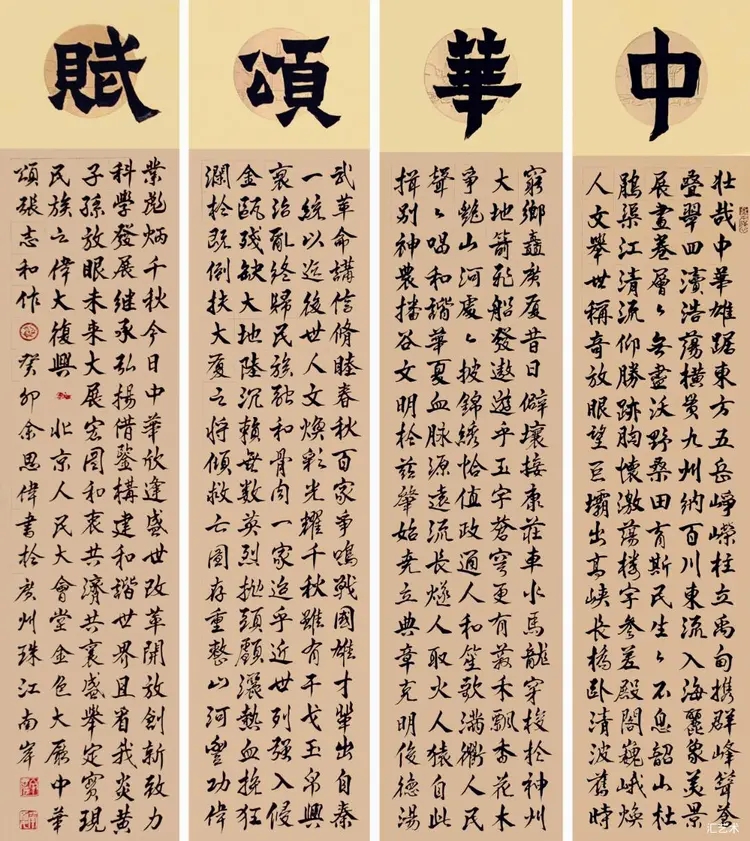 中華頌賦
壮哉中華雄踞東方五岳崢嶸柱立禹甸携群峰聳蒼
疊翠四瀆浩蕩横貫九州納百川東流入海麗象美景
展畫卷層々無盡沃野桑田育斯民生々不息韶山杜
鵑渠江清流仰勝跡胸懷激蕩樓宇參差殿閣巍峨焕
人文舉世稱奇放眼望巨壩出高峡長橋卧清波舊時
窮鄉矗廣厦昔日僻壤接康莊車水馬龍穿梭於神州
大地箭飛船發遨遊乎玉宇蒼穹更有菽禾飄香花木
争艷山河處々披錦綉恰值政通人和笙歌满衢人民
聲々唱和諧華夏血脉源遠流長燧人取火人猿自此
揖别神農播谷文明於兹肇始堯立典章克明俊德湯
武革命講信脩睦春秋百家争鳴戰國雄才輩出自秦
一統以迄後世人文焕彩光耀千秋雖有干戈玉帛興
衰治亂終歸民族融和骨肉一家迨乎近世列强入侵
金甌殘缺大地陸沉賴無數英烈抛頭顱灑熱血挽狂
瀾於既倒扶大廈之將傾救亡圖存重整山河豐功偉
業彪炳千秋今日中華欣逢盛世改革開放創新致力
科學發展继承弘揚借鑒構建和諧世界且看我炎黄
子孫放眼未来大展宏图和衷共濟共襄盛舉定實現
民族之偉大復興 北京人民大會堂金色大廳中華
頌張志和作 癸卯余思偉書於廣州珠江南岸
汇艺术